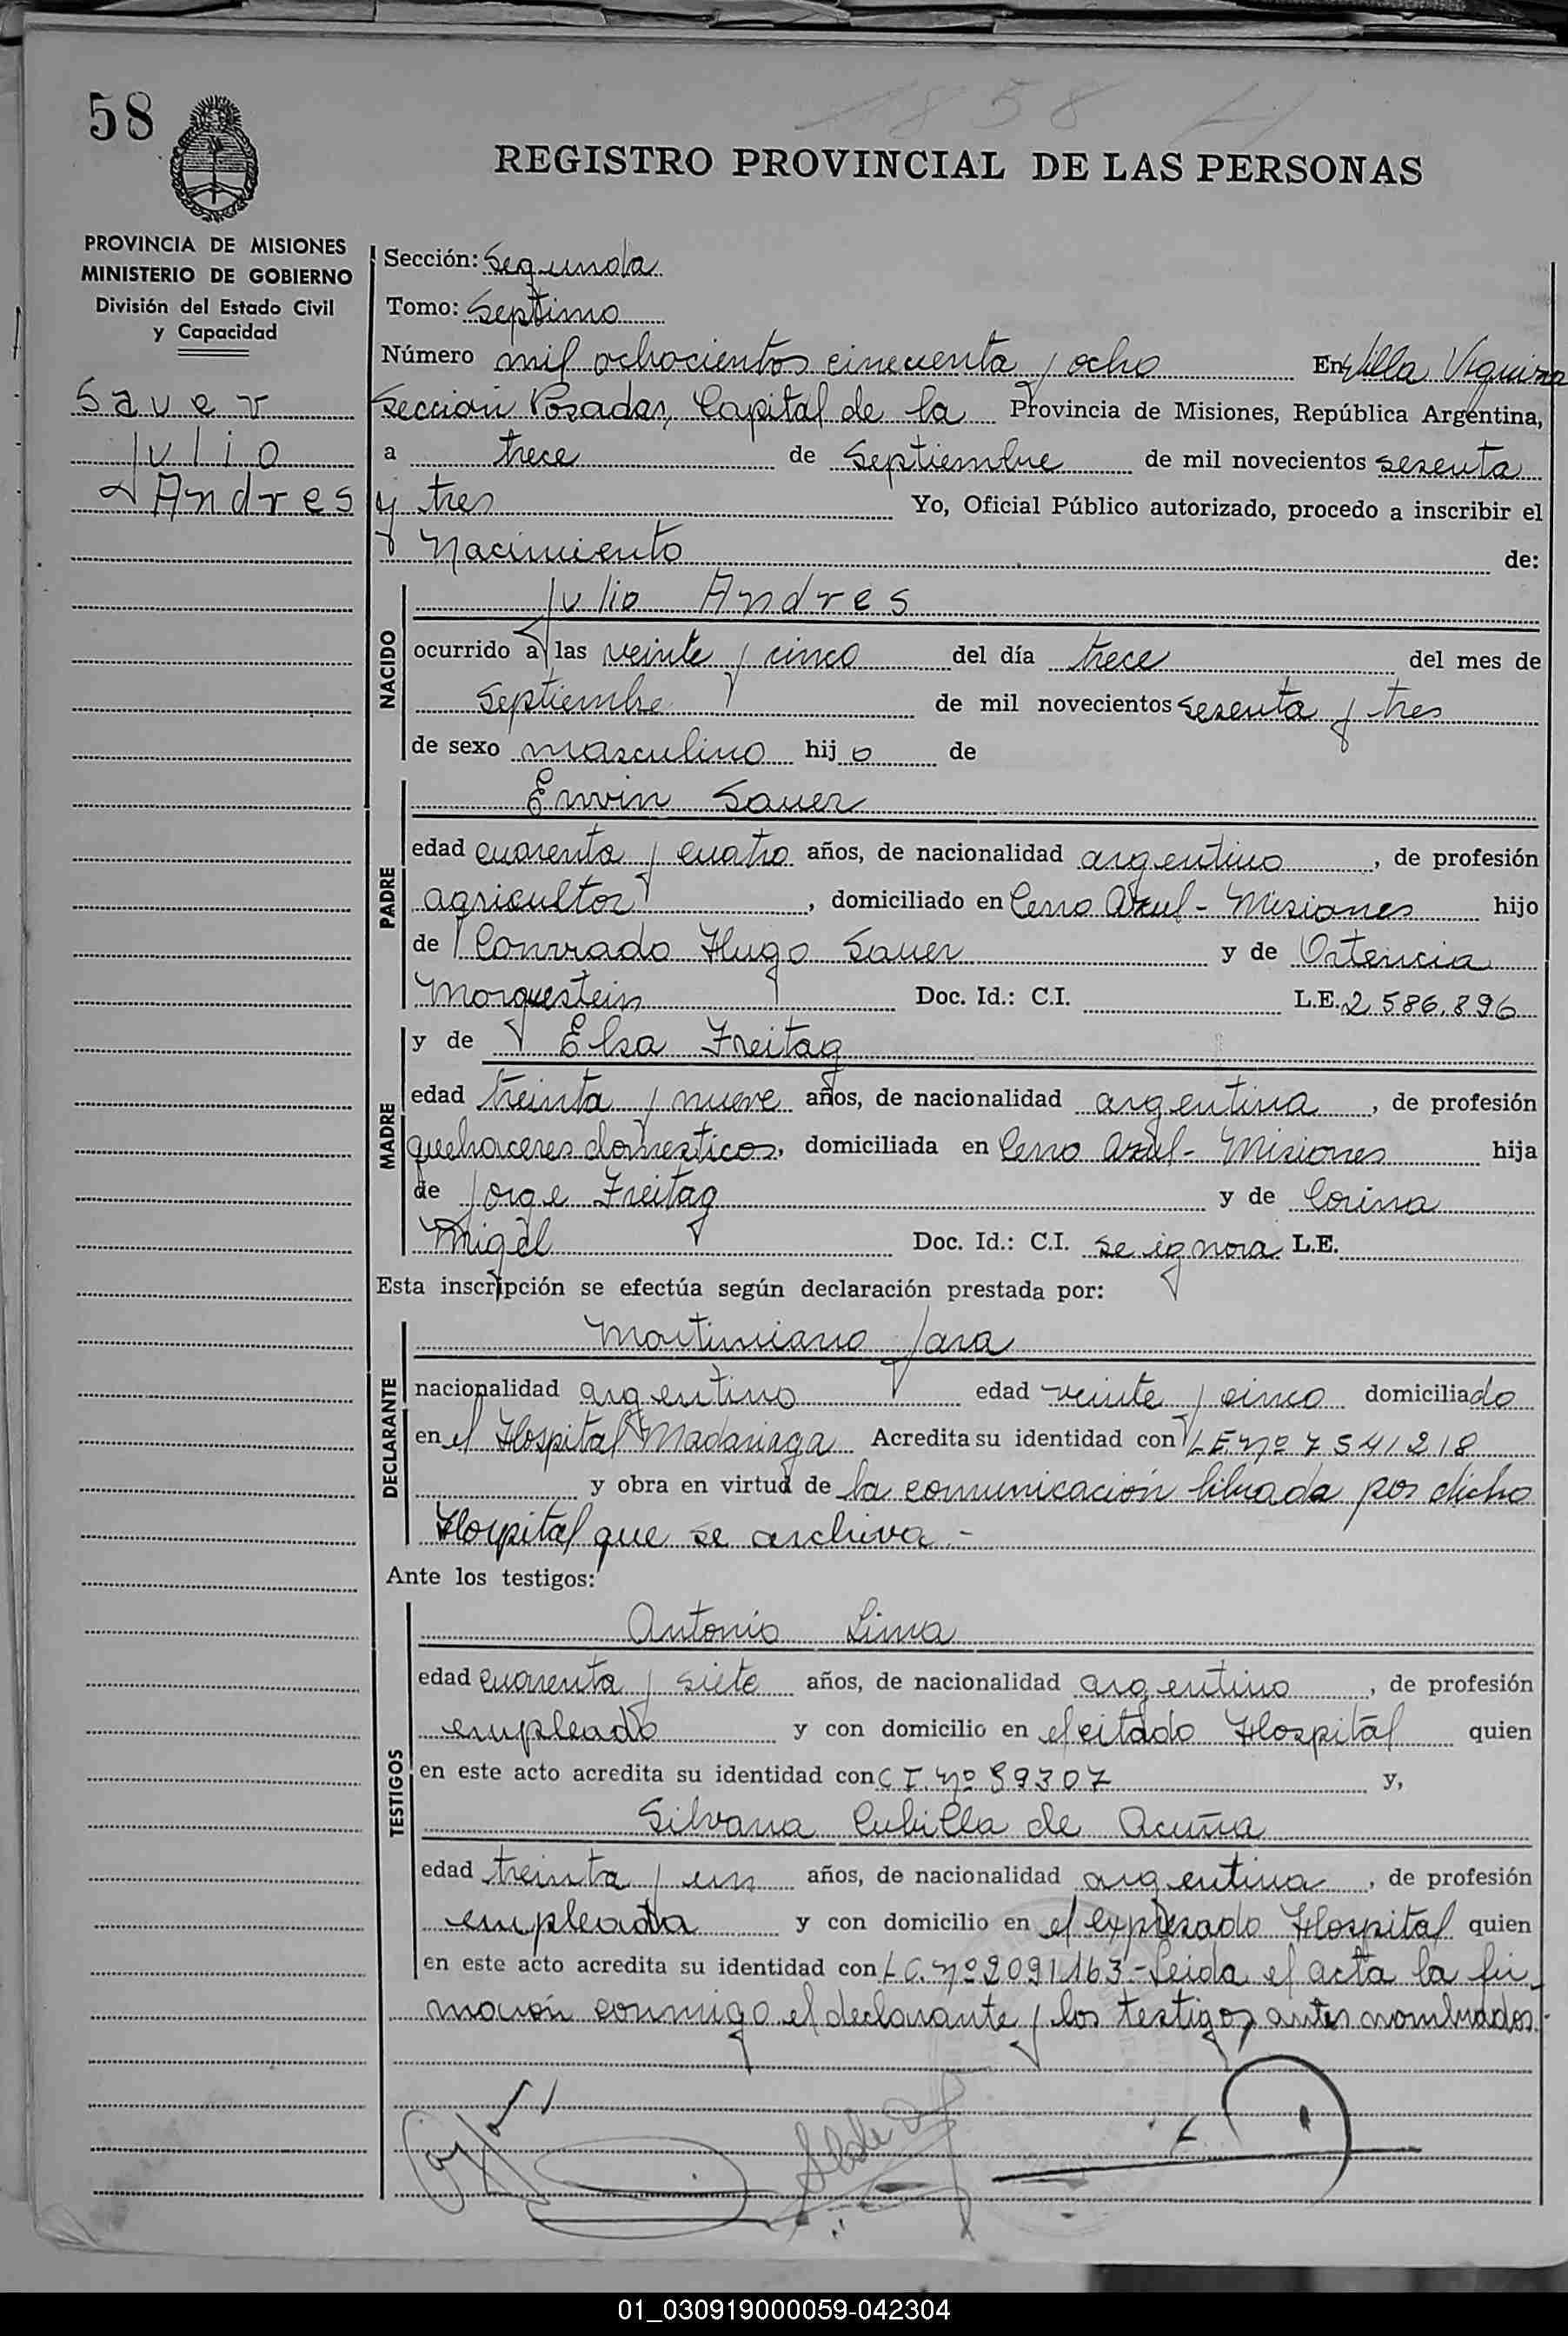 58
1858
REGISTRO PROVINCIAL DE LAS PERSONAS
PROVINCIA DE MISIONES
MINISTERIO DE GOBIERNO
División del Estado Civil
y Capacidad
Sauer
Julio
Andres
Sección: Segunda
Tomo: Septimo
Número mil ochocientos cincuenta y ocho En Villa Urquiza
Sección Posadas, Capital de la Provincia de Misiones, República Argentina,
a trece de Septiembre de mil novecientos sesenta
y tres Yo, Oficial Público autorizado, procedo a inscribir el
Nacimiento de:
NACIDO
Julio Andres
ocurrido a las veinte y cinco del día trece del mes de
Septiembre de mil novecientos sesenta y tres
de sexo masculino hijo de
PADRE
Erwin Sauer
edad cuarenta y cuatro años, de nacionalidad argentino, de profesión
agricultor, domiciliado en Cerro Azul - Misiones hijo
de Conrrado Hugo Sauer y de Ortencia
Morquestein Doc. Id.: C.I. L.E. 2 586.896
MADRE
y de Elsa Freitag
edad treinta y nueve años, de nacionalidad argentina, de profesión
quehaceres domesticos, domiciliada en Cerro Azul - Misiones hija
de Jorge Freitag y de Corina
Migel Doc. Id.: C.I. se ignora L.E.
Esta inscripción se efectúa según declaración prestada por:
DECLARANTE
Martimiano Jara
nacionalidad argentino edad veinte y cinco domiciliado
en el Hospital Madariaga Acredita su identidad con L.E. Nº 7541218
y obra en virtud de la comunicación librada por dicho
Hospital que se archiva.-
Ante los testigos:
TESTIGOS
Antonio Lima
edad cuarenta y siete años, de nacionalidad argentino, de profesión
empleado y con domicilio en el citado Hospital quien
en este acto acredita su identidad con C I. Nº 59307 y,
Silvana Cubilla de Acuña
edad treinta y un años, de nacionalidad argentina, de profesión
empleada y con domicilio en el expresado Hospital quien
en este acto acredita su identidad con L C. Nº 2091.163.- Leida el acta la fir-
maron conmigo el declarante y los testigos antes nombrados.-
01_030919000059-042304